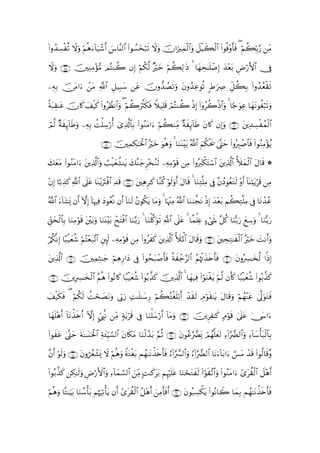 مِّن رَّبِّكُمْ ۖ فَأَوْفُوا۟ ٱلْكَيْلَ وَٱلْمِيزَانَ وَلَا تَبْخَسُوا۟ ٱلنَّاسَ أَشْيَآءَهُمْ وَلَا تُفْسِدُوا۟
فِى ٱلْأَرْضِ بَعْدَ إِصْلَـٰحِهَا ۚ ذَٰلِكُمْ خَيْرٌ لَّكُمْ إِن كُنتُم مُّؤْمِنِينَ ﴿٨٥﴾ وَلَا
تَقْعُدُوا۟ بِكُلِّ صِرَٰطٍ تُوعِدُونَ وَتَصُدُّونَ عَن سَبِيلِ ٱللَّهِ مَنْ ءَامَنَ بِهِۦ
وَتَبْغُونَهَا عِوَجًا ۚ وَٱذْكُرُوٓا۟ إِذْ كُنتُمْ قَلِيلًا فَكَثَّرَكُمْ ۖ وَٱنظُرُوا۟ كَيْفَ كَانَ عَـٰقِبَةُ
ٱلْمُفْسِدِينَ ﴿٨٦﴾ وَإِن كَانَ طَآئِفَةٌ مِّنكُمْ ءَامَنُوا۟ بِٱلَّذِىٓ أُرْسِلْتُ بِهِۦ وَطَآئِفَةٌ لَّمْ
يُؤْمِنُوا۟ فَٱصْبِرُوا۟ حَتَّىٰ يَحْكُمَ ٱللَّهُ بَيْنَنَا ۚ وَهُوَ خَيْرُ ٱلْحَـٰكِمِينَ ﴿٨٧﴾
۞ قَالَ ٱلْمَلَأُ ٱلَّذِينَ ٱسْتَكْبَرُوا۟ مِن قَوْمِهِۦ لَنُخْرِجَنَّكَ يَـٰشُعَيْبُ وَٱلَّذِينَ ءَامَنُوا۟ مَعَكَ
مِن قَرْيَتِنَآ أَوْ لَتَعُودُنَّ فِى مِلَّتِنَا ۚ قَالَ أَوَلَوْ كُنَّا كَـٰرِهِينَ ﴿٨٨﴾ قَدِ ٱفْتَرَيْنَا عَلَى ٱللَّهِ كَذِبًا إِنْ
عُدْنَا فِى مِلَّتِكُم بَعْدَ إِذْ نَجَّىٰنَا ٱللَّهُ مِنْهَا ۚ وَمَا يَكُونُ لَنَآ أَن نَّعُودَ فِيهَآ إِلَّآ أَن يَشَآءَ ٱللَّهُ
رَبُّنَا ۚ وَسِعَ رَبُّنَا كُلَّ شَىْءٍ عِلْمًا ۚ عَلَى ٱللَّهِ تَوَكَّلْنَا ۚ رَبَّنَا ٱفْتَحْ بَيْنَنَا وَبَيْنَ قَوْمِنَا بِٱلْحَقِّ
وَأَنتَ خَيْرُ ٱلْفَـٰتِحِينَ ﴿٨٩﴾ وَقَالَ ٱلْمَلَأُ ٱلَّذِينَ كَفَرُوا۟ مِن قَوْمِهِۦ لَئِنِ ٱتَّبَعْتُمْ شُعَيْبًا إِنَّكُمْ
إِذًا لَّخَـٰسِرُونَ ﴿٩٠﴾ فَأَخَذَتْهُمُ ٱلرَّجْفَةُ فَأَصْبَحُوا۟ فِى دَارِهِمْ جَـٰثِمِينَ ﴿٩١﴾ ٱلَّذِينَ
كَذَّبُوا۟ شُعَيْبًا كَأَن لَّمْ يَغْنَوْا۟ فِيهَا ۚ ٱلَّذِينَ كَذَّبُوا۟ شُعَيْبًا كَانُوا۟ هُمُ ٱلْخَـٰسِرِينَ ﴿٩٢﴾
فَتَوَلَّىٰ عَنْهُمْ وَقَالَ يَـٰقَوْمِ لَقَدْ أَبْلَغْتُكُمْ رِسَـٰلَـٰتِ رَبِّى وَنَصَحْتُ لَكُمْ ۖ فَكَيْفَ
ءَاسَىٰ عَلَىٰ قَوْمٍ كَـٰفِرِينَ ﴿٩٣﴾ وَمَآ أَرْسَلْنَا فِى قَرْيَةٍ مِّن نَّبِىٍّ إِلَّآ أَخَذْنَآ أَهْلَهَا
بِٱلْبَأْسَآءِ وَٱلضَّرَّآءِ لَعَلَّهُمْ يَضَّرَّعُونَ ﴿٩٤﴾ ثُمَّ بَدَّلْنَا مَكَانَ ٱلسَّيِّئَةِ ٱلْحَسَنَةَ حَتَّىٰ عَفَوا۟
وَّقَالُوا۟ قَدْ مَسَّ ءَابَآءَنَا ٱلضَّرَّآءُ وَٱلسَّرَّآءُ فَأَخَذْنَـٰهُم بَغْتَةً وَهُمْ لَا يَشْعُرُونَ ﴿٩٥﴾ وَلَوْ أَنَّ
أَهْلَ ٱلْقُرَىٰٓ ءَامَنُوا۟ وَٱتَّقَوْا۟ لَفَتَحْنَا عَلَيْهِم بَرَكَـٰتٍ مِّنَ ٱلسَّمَآءِ وَٱلْأَرْضِ وَلَـٰكِن كَذَّبُوا۟
فَأَخَذْنَـٰهُم بِمَا كَانُوا۟ يَكْسِبُونَ ﴿٩٦﴾ أَفَأَمِنَ أَهْلُ ٱلْقُرَىٰٓ أَن يَأْتِيَهُم بَأْسُنَا بَيَـٰتًا وَهُمْ